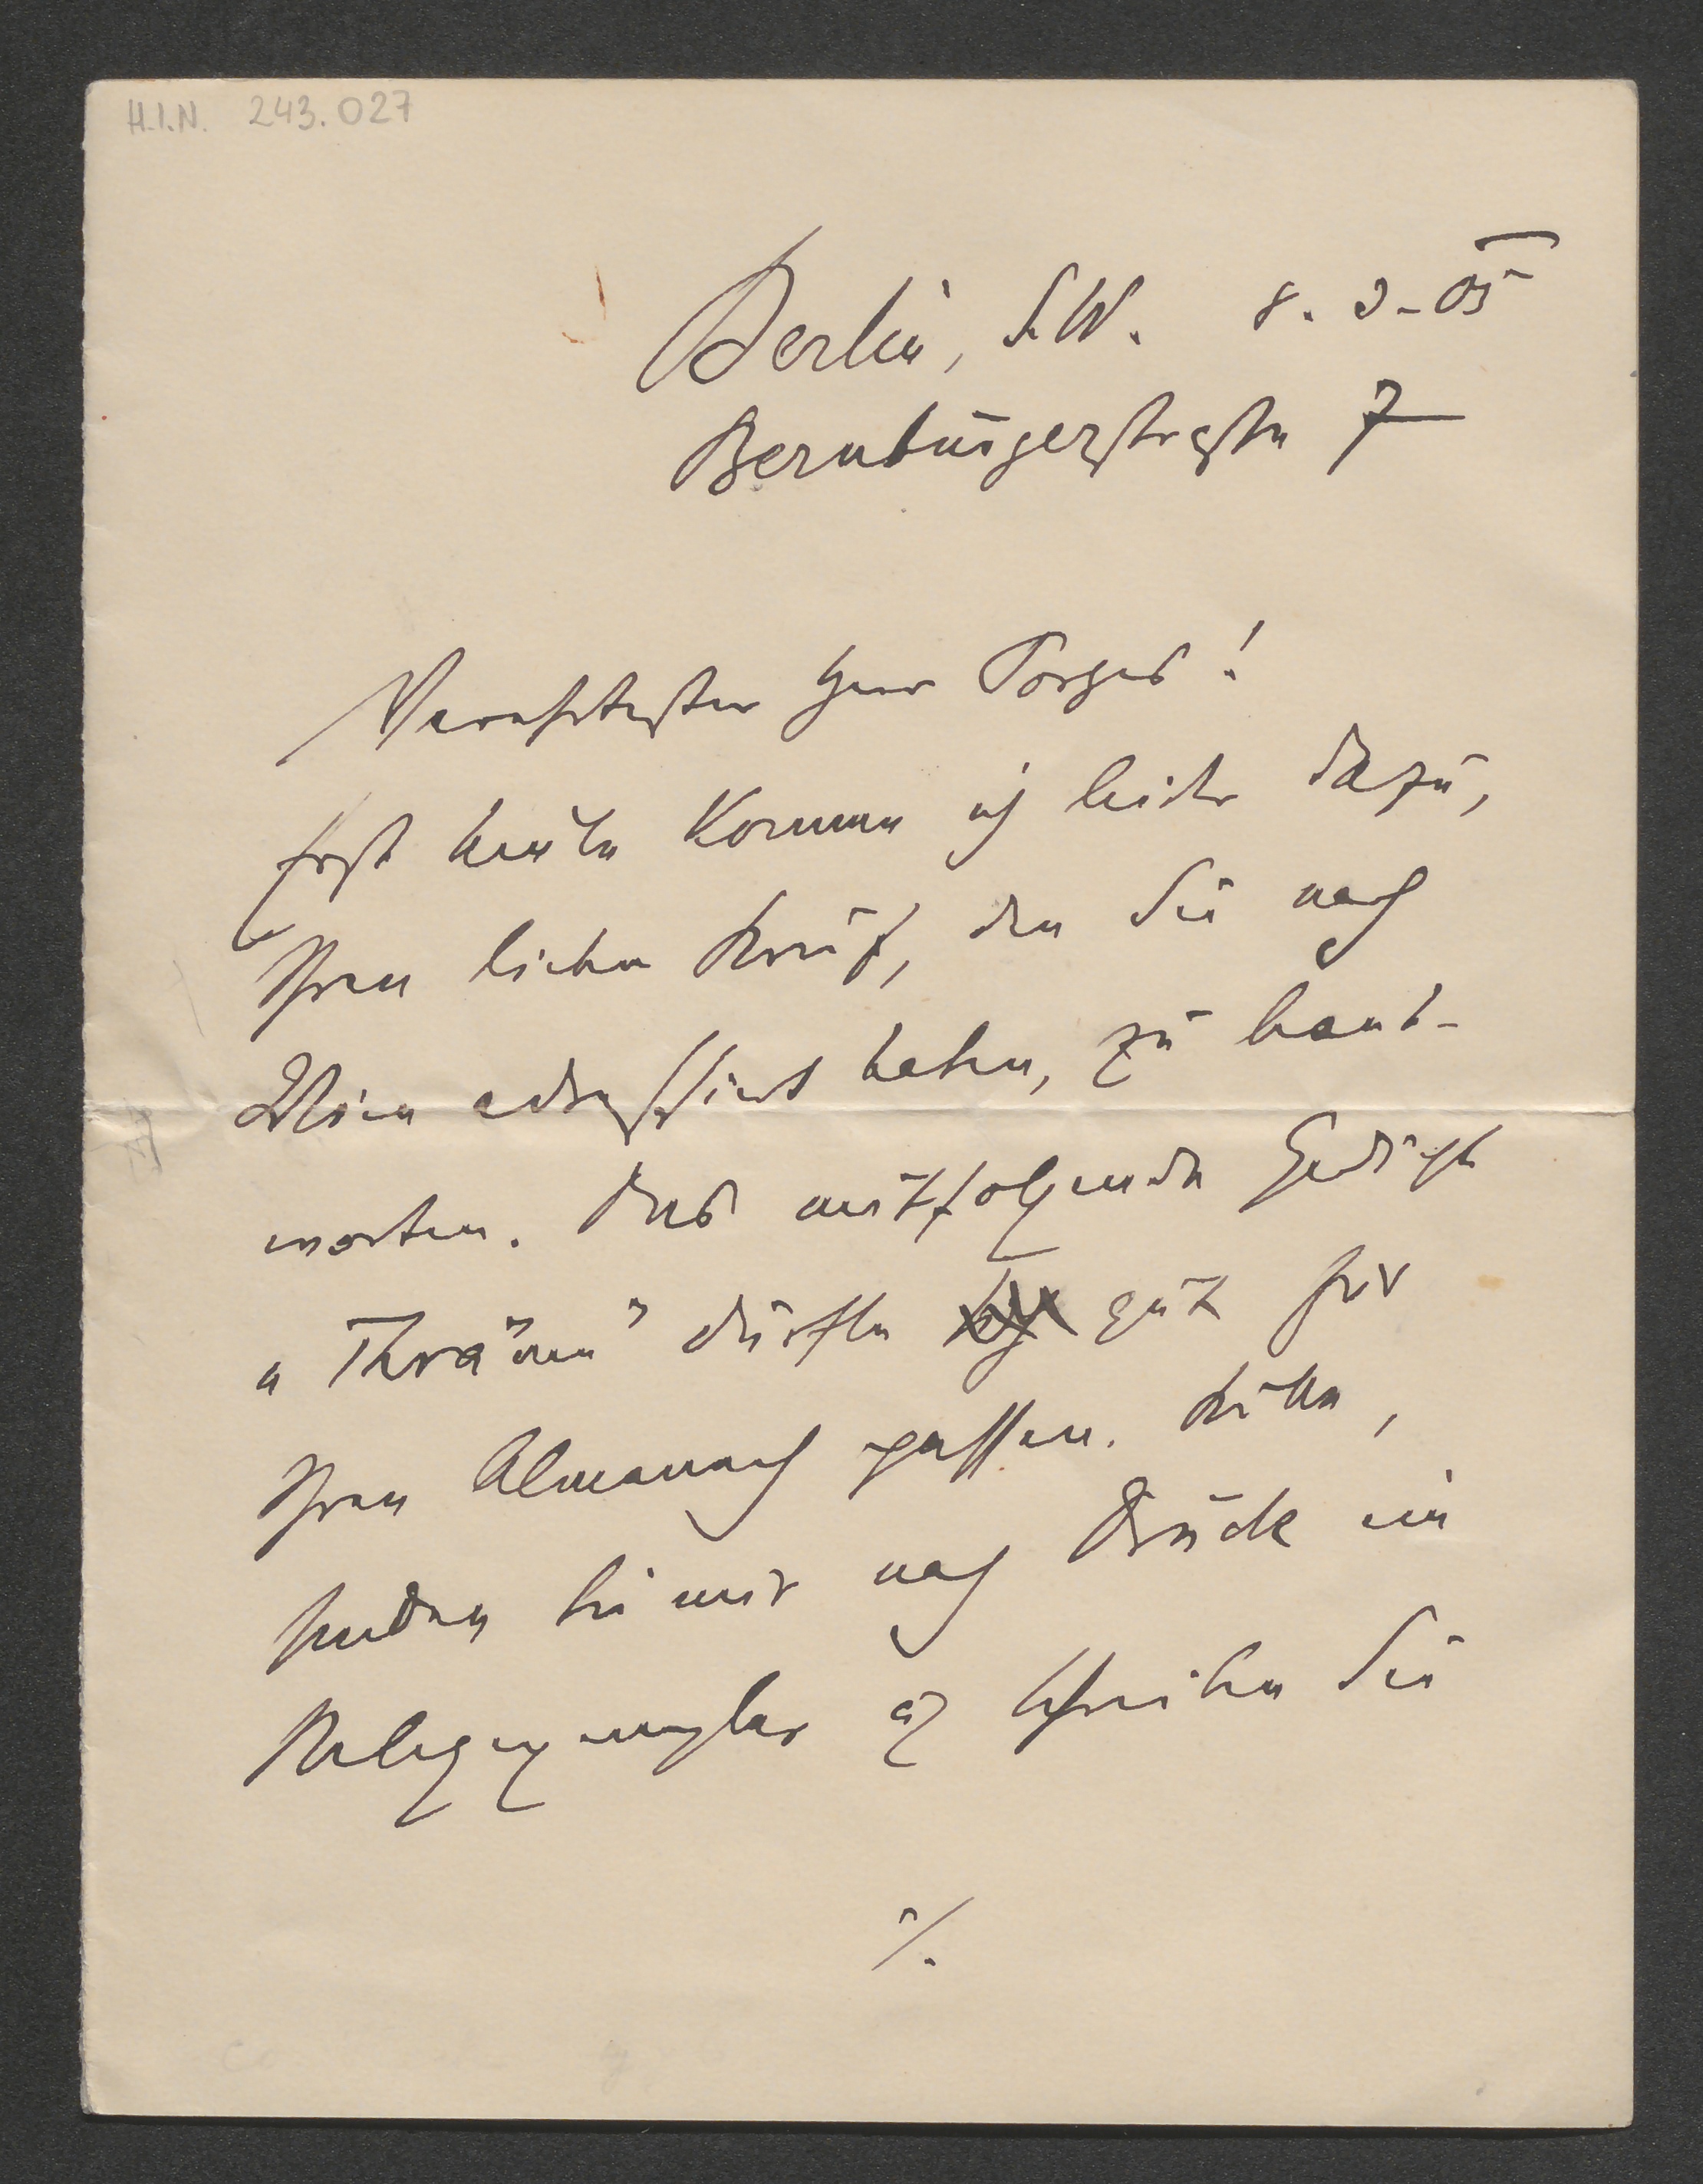 H.I.N. 243.027
Berlin, S.W. 8. 3. 05
Bernburgerstraße 7
Verehrtester Herr Porges!
Erst heute komme ich leider dazu,
Ihren lieben Brief, den Sie nach
Wien adressiert haben, zu beant-
worten. Das mitfolgende Gedicht
„Thränen" dürfte gut für
Ihren Almanach passen. Bitte,
senden Sie mir nach Druck ein
Belegexemplar u schreiben Sie
./.